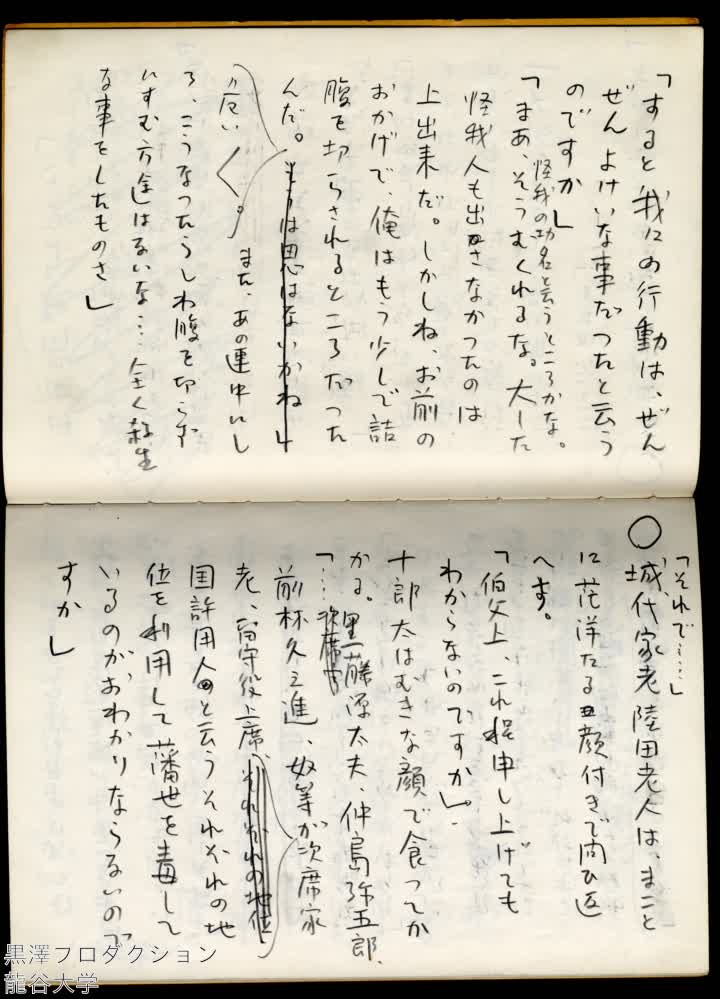 「すると我々の行動は、ぜん
ぜんよけいな事だつたと云う
のですか」
怪我の功名と云うところかな。
「まあ、そうむくれるな。大した
怪我人も出さなかつたのは
上出来だ。しかしね、お前の
おかげで、俺はもう少しで詰
腹を切らされるところだつた
んだ。もうは思はないかね」
また、あの連中にし
ろ、こうなつたらしわ腹を切らず
にすむ方途はないな…全く殺生
な事をしたものさ」
「それで……」
○
城代家老陸田老人は、まこと
に茫洋たる顔付きで問ひ返
へす。
「伯父上、これ程申し上げても
わからないのですか」
十郎太はむきな顔で食つてか
かる。
「……次席家
黒藤源太夫、仲島弥五郎、
前林久之進、奴等が次席家
老、留守役上席、それぞれの地位
国許用人と云うそれぞれの地
位を利用して藩世を毒して
いるのがおわかりならないので
すか」
黒澤プロダクション
龍谷大学